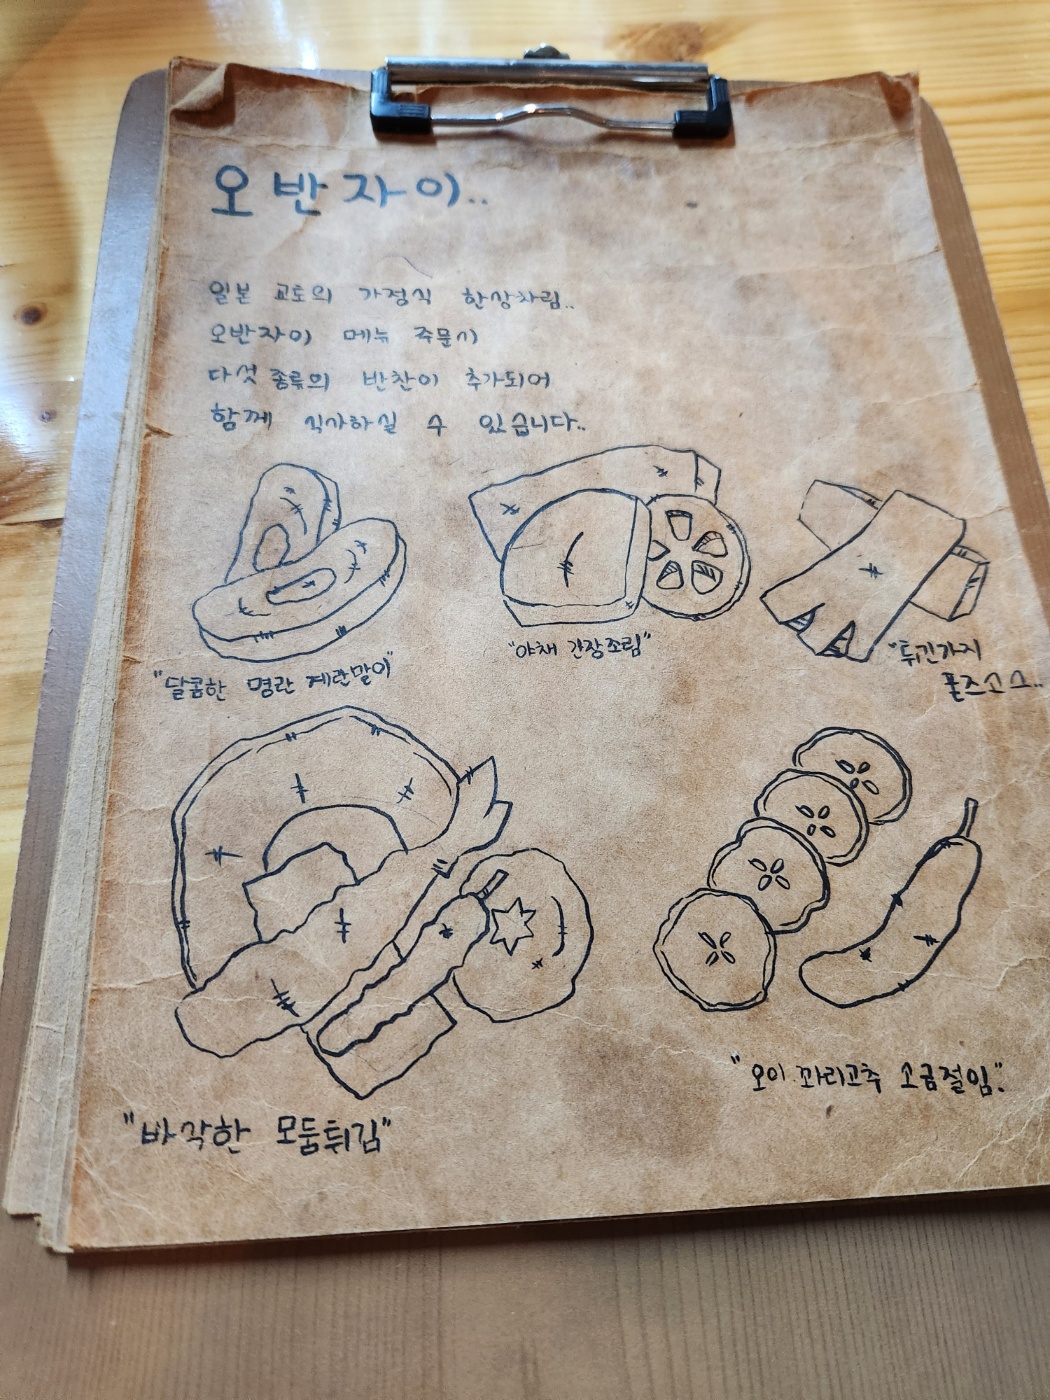 오반자이..
일본 교토의 가정식 한상차림..
오반자이 메뉴 주문시
다섯 종류의 반찬이 추가되어
함께 식사하실 수 있습니다..
"달콤한 명란 계란말이"
"야채 간장조림"
"튀긴가지
폰즈소스..
"바삭한 모둠튀김"
"오이 꽈리고추 소금절임"..